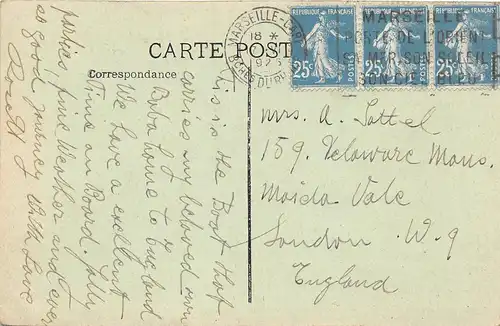 CARTE POST
Correspondance
MARSEILLE-
18 *
1925
MARSEILLE
PORTE DE L'ORIENT
SON SOLEIL
REPUBLIQUE FRANÇAISE
25c
POSTES
REPUBLIQUE FRANÇAISE
25c
POSTES
REPUBLIQUE FRANÇAISE
25c
POSTES
This is the Boat that
carries my beloved own
Baba home to England
We have a excellent
Time on Board. Jolly
parties, fine Weather and ever
so good Journey With Love
Mrs. A. Sottel
159. Delaware Mans.
Maida Vale
London W. 9
England